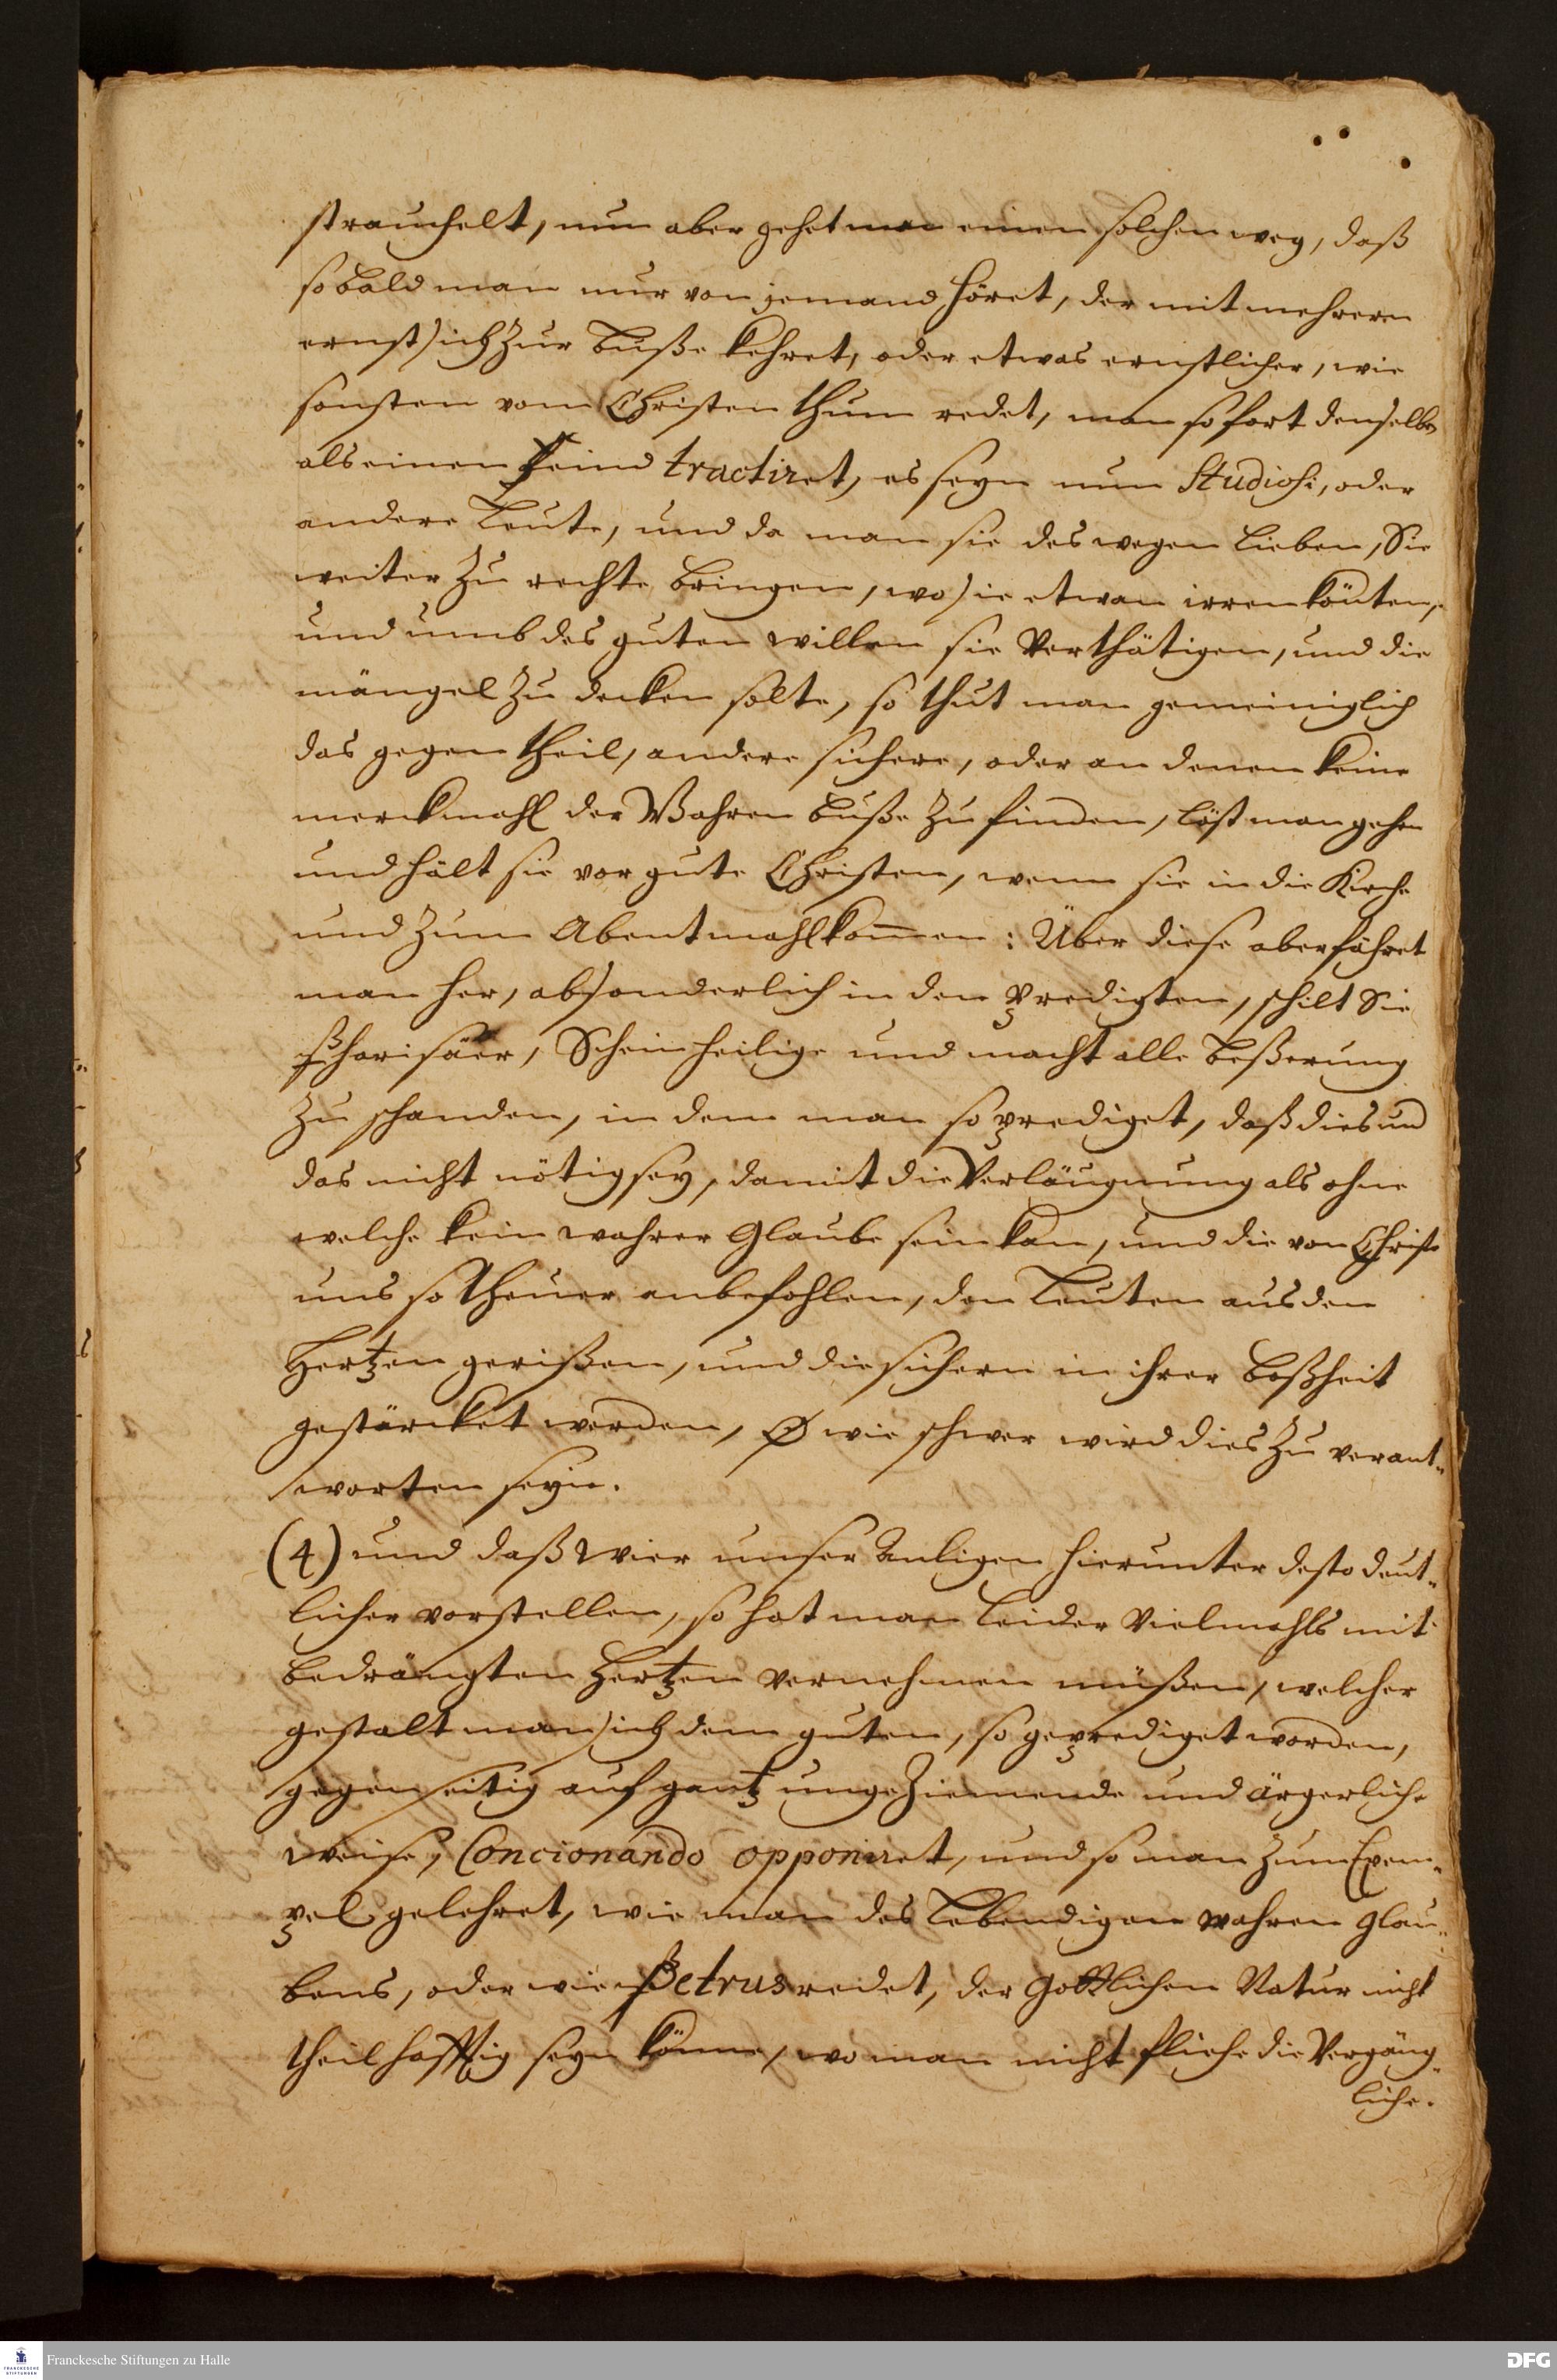 strauchelt, nun aber gehet man einen solchen weg, daß
so bald man nur von jemand höret, der mit mehrern
ernst sich zur Buße kehret, oder etwas ernstlicher, wie
sonsten vom Christenthum redet, man so fort denselben
als einen Feind tractiret, es seyn nun Studiosi, oder
andere Leute, und da man sie deswegen lieben, Sie
weiter zu rechte bringen, wo sie etwan irren könten,
und umb des guten willen sie Verthätigen, und die
mängel zu decken solte, so thut man gemeiniglich
das gegentheil, andere sichere, oder an denen keine
merckmahl der Wahren buße zu finden, läst man gehen
und hält sie vor gute Christen, wenn sie in die Kirche
und zum Abentmahl kom̄en: Über diese aber fähret
man her, absonderlich in den Predigten, schilt Sie
Pharisäer, Scheinheilige und macht alle Beßerung
zu schanden, in dem man so prediget, daß dies und
das nicht nötig sey, damit die Verläugnung als ohne
welche kein wahrer Glaube sein kan, und die von Christo
uns so theuer anbefohlen, den Leuten aus dem
Hertzen gerißen, und die sichern in ihrer Boßheit
gestärcket werden, O wie schwer wird dies zu verant-
worten seyn.
(4) und daß Wier unser Anligen hierunter desto deut-
licher vorstellen, so hat man leider Vielmahls mit
bedrängten Hertzen vernehmen müßen, welcher
gestalt man sich dem guten, so geprediget worden,
gegenseitig auf gantz ungeziemende und ärgerliche
weise, Concionando opponiret, und so man zum Exem-
pel gelehret, wie man des Lebendigen wahren Glau-
bens, oder wie Petrus redet, der Göttlichen Natur nicht
theilhafftig seyn könne, wo man nicht fliehe die Vergäng-
liche.
Franckesche Stiftungen zu Halle
FRANCKESCHE STIFTUNGEN
DFG